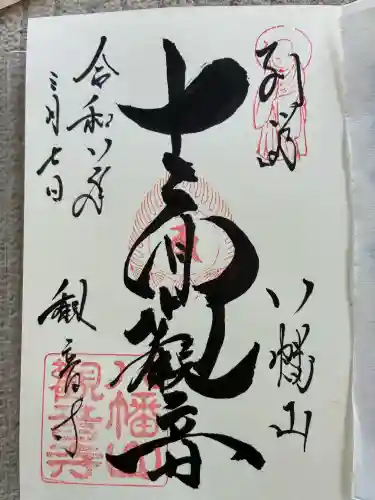 八幡山
十一面観音
令和八年
三月七日
観音寺
八幡山
観音寺